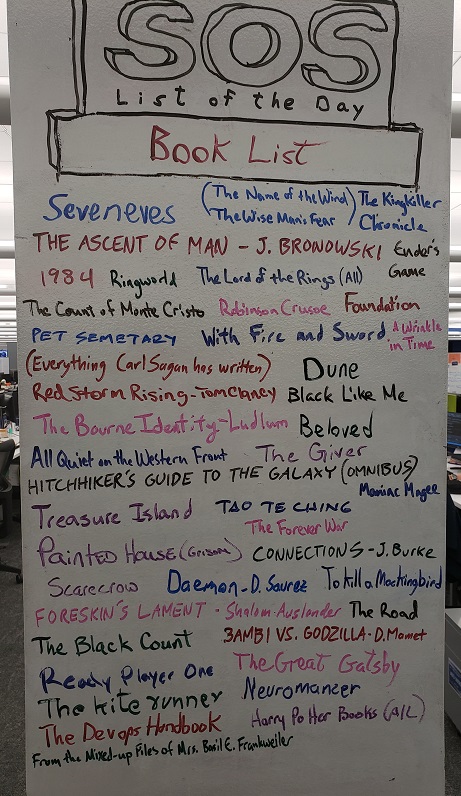 SOS
List of the Day
Book List
Seveneves (The Name of the Wind) The Kingkiller
The Wise Man's Fear Chronicle
THE ASCENT OF MAN - J. BRONOWSKI Ender's
Game
1984 Ringworld The Lord of the Rings (All)
The Count of Monte Cristo Robinson Crusoe Foundation
PET SEMETARY With Fire and Sword A Wrinkle
in Time
(Everything Carl Sagan has written) Dune
Red Storm Rising - Tom Clancy Black Like Me
The Bourne Identity - Ludlum Beloved
All Quiet on the Western Front The Giver
HITCHHIKER'S GUIDE TO THE GALAXY (OMNIBUS)
Maniac Magee
Treasure Island TAO TE CHING
The Forever War
PAINTED HOUSE (Grisom) CONNECTIONS - J. Burke
Scarecrow Daemon - D. Saurez To kill a Mockingbird
FORESKIN'S LAMENT - Shalom Auslander The Road
The Black Count BAMBI VS. GODZILLA - D. Mamet
Ready Player One The Great Gatsby
The kite runner Neuromancer
The Devops Handbook Harry Potter Books (ALL)
From the Mixed-up Files of Mrs. Basil E. Frankweiler